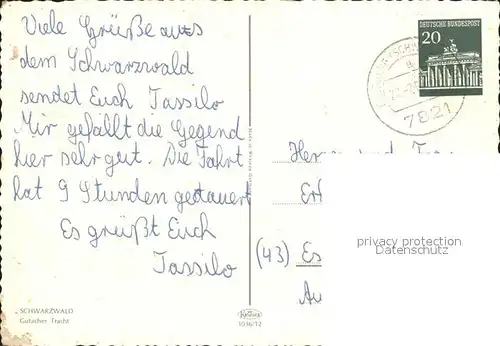 Viele Grüße aus
dem Schwarzwald
sendet Euch Tassilo
Mir gefällt die Gegend
hier sehr gut. Die Fahrt
hat 9 Stunden gedauert
Es grüßt Euch
Tassilo
SCHWARZWALD
Gutacher Tracht
Krüger
1036/12
DEUTSCHE BUNDESPOST
20
7821
(43) Es
privacy protection
Datenschutz